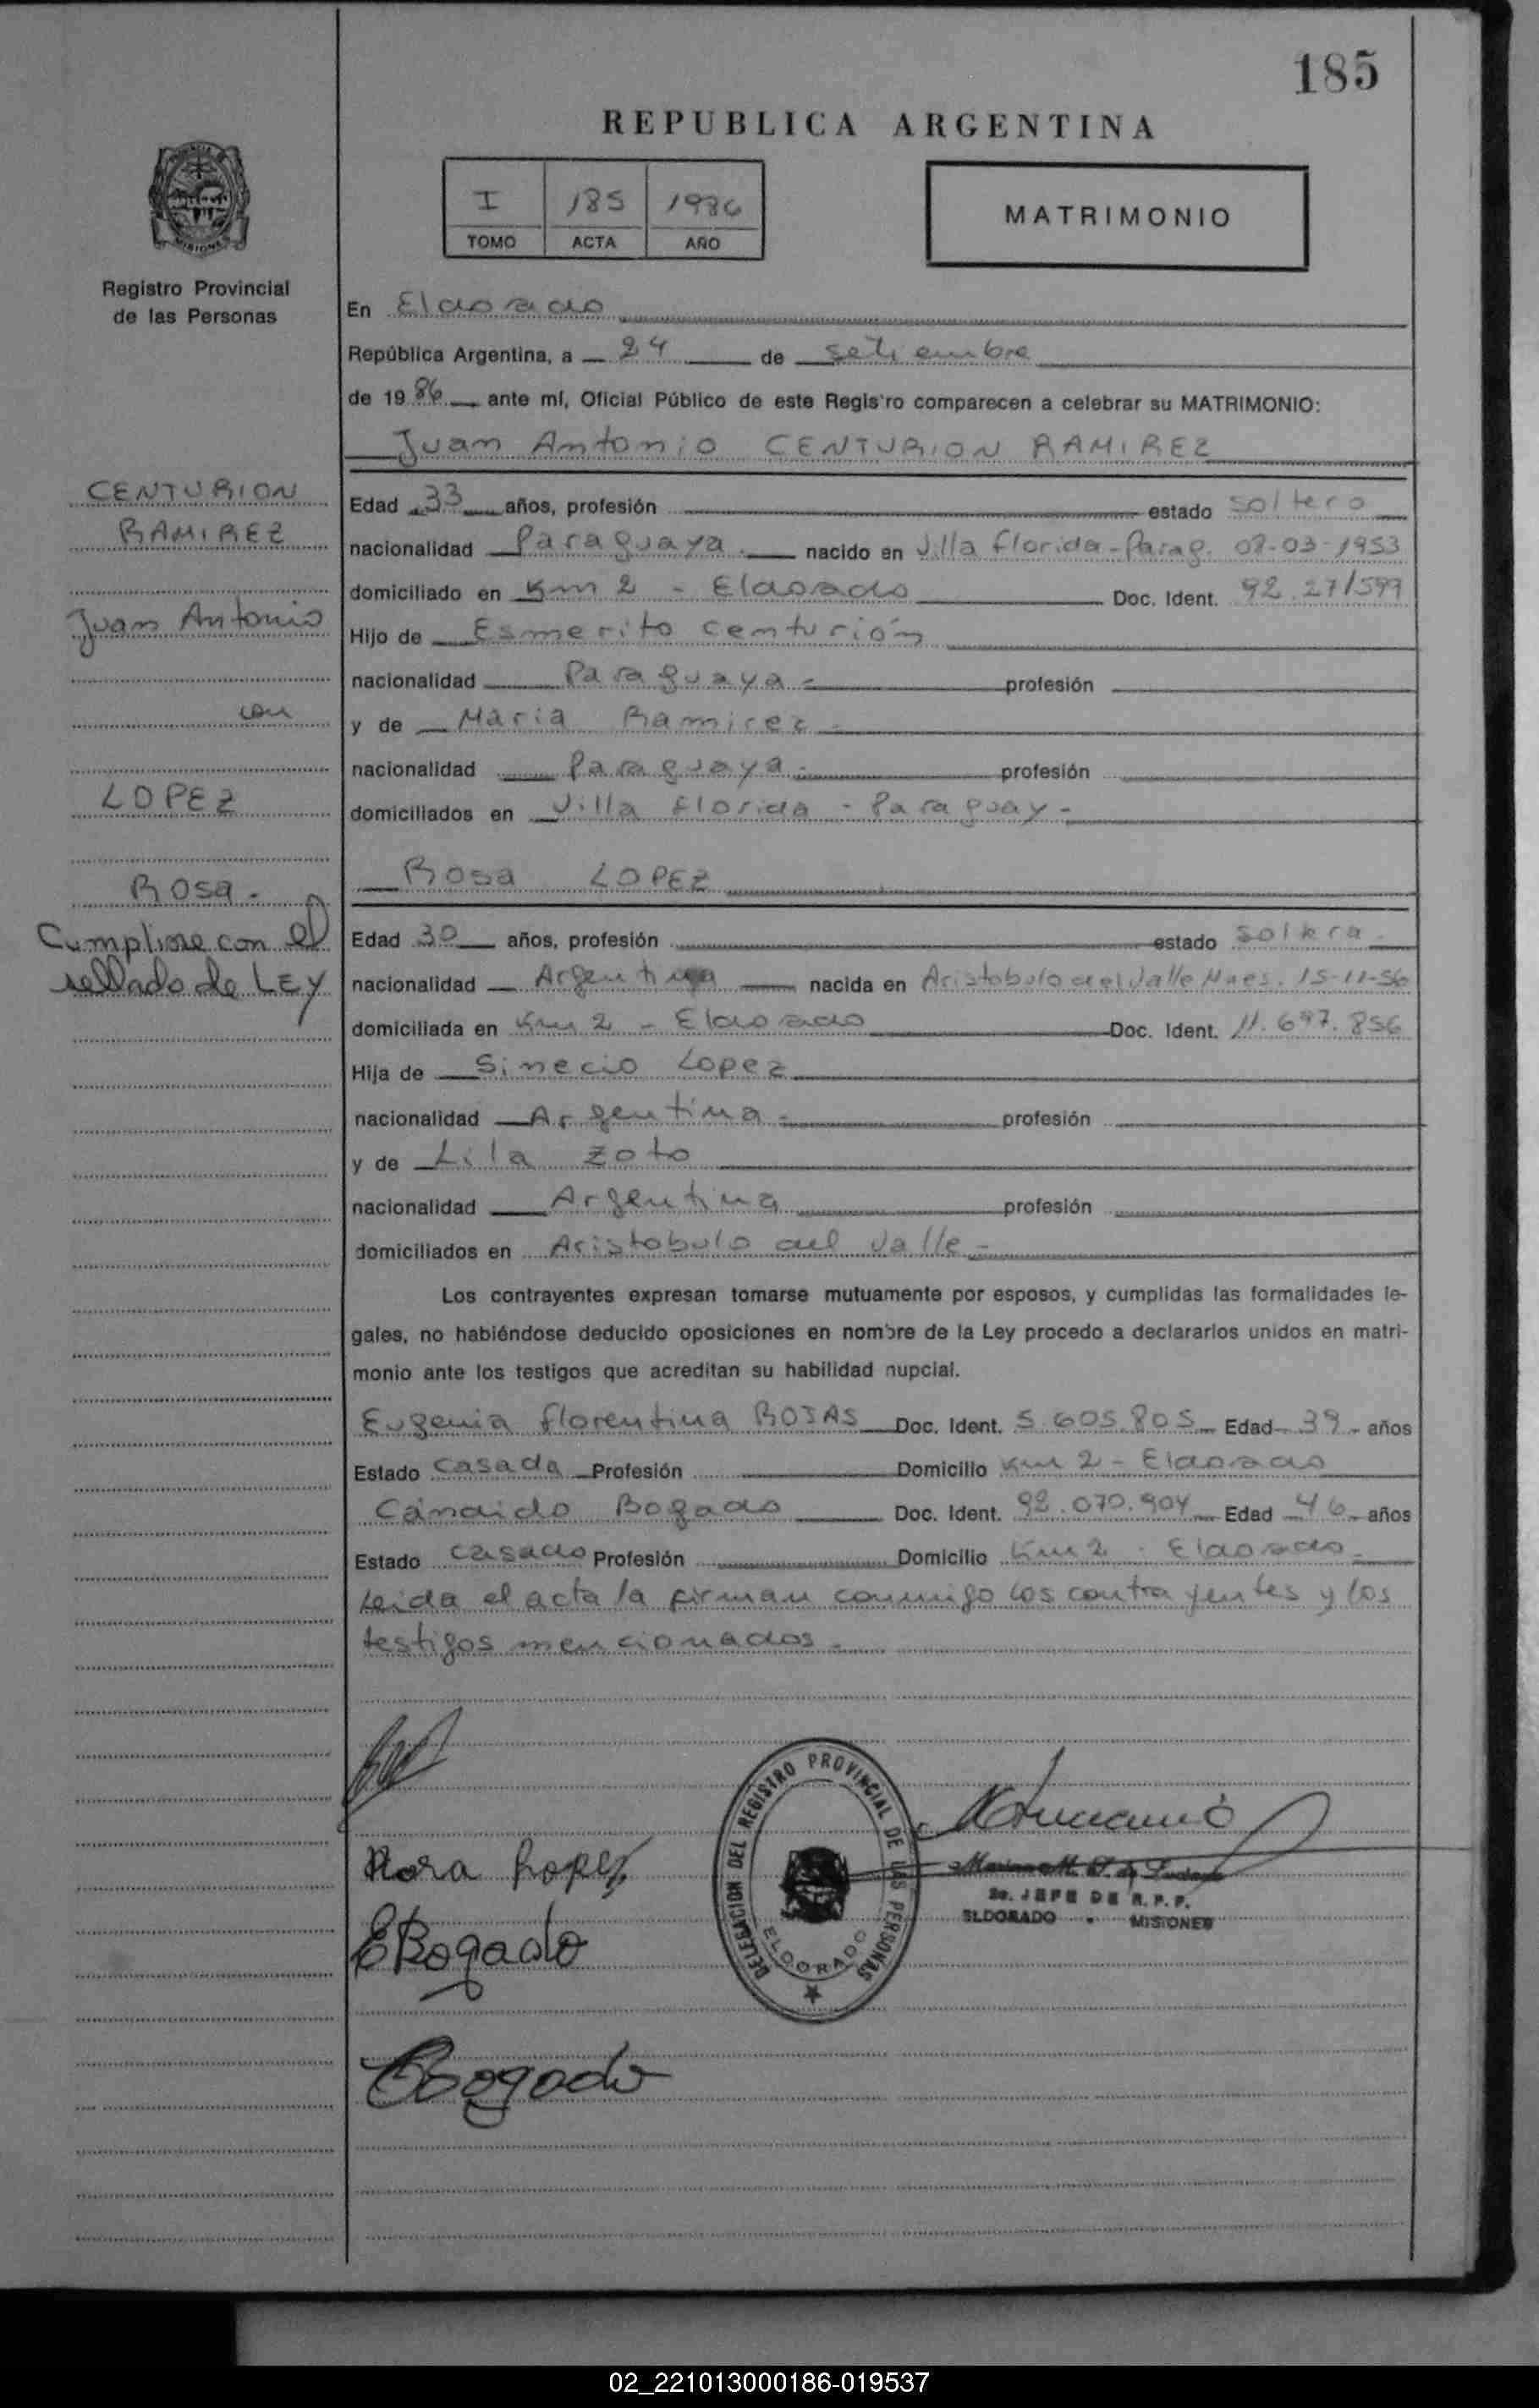 185
REPUBLICA ARGENTINA
I 185 1986
TOMO ACTA AÑO
MATRIMONIO
Registro Provincial
de las Personas
En Eldorado
República Argentina, a 24 de setiembre
de 1986 ante mí, Oficial Público de este Registro comparecen a celebrar su MATRIMONIO:
Juan Antonio CENTURION RAMIREZ
CENTURION
RAMIREZ
Juan Antonio
con
LOPEZ
Rosa.
Cumplise con el
sellado de LEY
Edad 33 años, profesión estado soltero
nacionalidad Paraguaya nacido en Villa Florida-Parag. 08-03-1953
domiciliado en Km 2 - Eldorado Doc. Ident. 92.271599
Hijo de Esmerito Centurión
nacionalidad Paraguaya- profesión
y de Maria Ramirez
nacionalidad Paraguaya- profesión
domiciliados en Villa Florida - Paraguay-
Rosa LOPEZ
Edad 30 años, profesión estado soltera
nacionalidad Argentina nacida en Aristobulo del Valle Mnes. 15-11-56
domiciliada en Km 2 - Eldorado Doc. Ident. 11.697.856
Hija de Sinecio Lopez
nacionalidad Argentina- profesión
y de Lila Zoto
nacionalidad Argentina profesión
domiciliados en Aristobulo del Valle-
Los contrayentes expresan tomarse mutuamente por esposos, y cumplidas las formalidades le-
gales, no habiéndose deducido oposiciones en nombre de la Ley procedo a declararlos unidos en matri-
monio ante los testigos que acreditan su habilidad nupcial.
Eugenia Florentina ROJAS Doc. Ident. 5.605.805 Edad 39 años
Estado Casada Profesión Domicilio Km 2 - Eldorado
Cándido Bogado Doc. Ident. 92.070.904 Edad 46 años
Estado Casado Profesión Domicilio Km 2 - Eldorado-
Leida el acta la firman conmigo los contrayentes y los
testigos mencionados-
Rosa Lopez
EBogado
CBogado
DELEGACION DEL REGISTRO PROVINCIAL DE LAS PERSONAS
ELDORADO
JEFE DE R.P.P.
ELDORADO - MISIONES
02_221013000186-019537